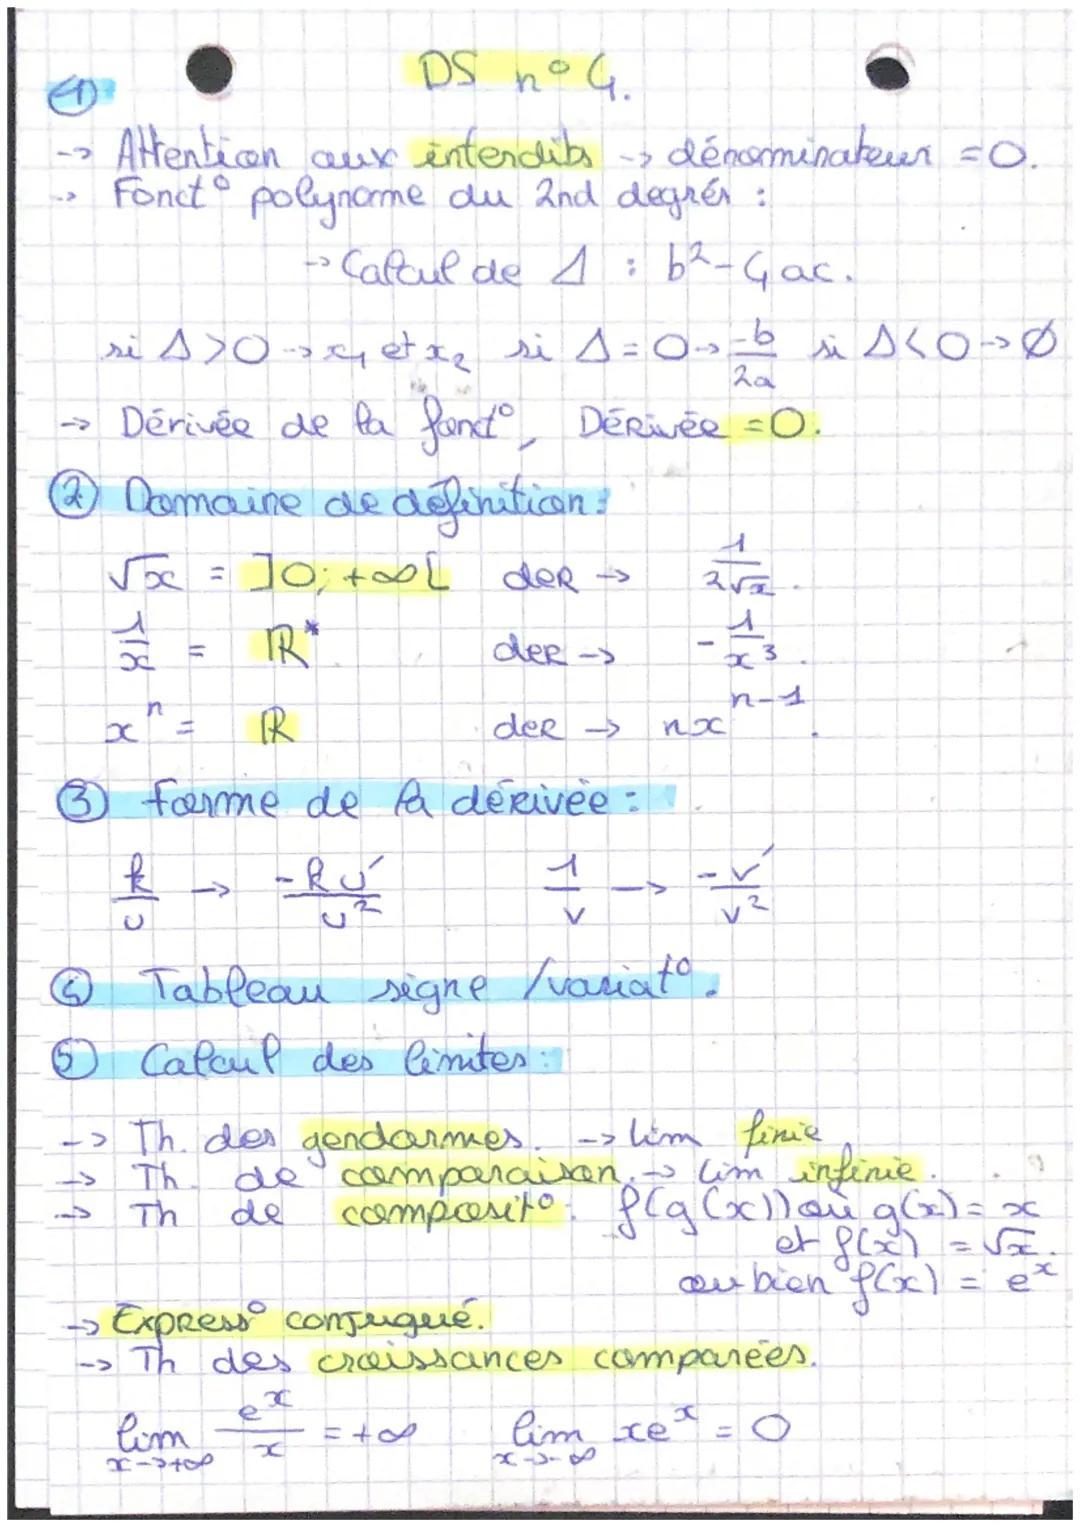 DS n° 4.
①
-> Attention aux interdits -> dénominateur = 0.
-> Fonct° polynome du 2nd degrés :
-> Calcul de Δ : b² - 4ac.
si Δ>0 -> x₁ et x₂ si Δ=0 -> -b/2a si Δ<0 -> Ø
-> Dérivée de la fonct°, Dérivée = 0.
② Domaine de définition :
√x = ]0; +∞[ der -> 1/2√x.
1/x = ℝ* der -> -1/x³.
xⁿ = ℝ der -> nxⁿ⁻¹.
③ forme de la dérivée :
k/u -> -ku'/u² 1/v -> -v'/v²
④ Tableau signe /variat°.
⑤ Calcul des limites :
-> Th. des gendarmes. -> lim finie
-> Th. de comparaison. -> lim infinie.
-> Th de composit° : f(g(x)) où g(x) = x
et f(x) = √x.
ou bien f(x) = eˣ
-> Express° conjugué.
-> Th des croissances comparées.
lim x->+∞ eˣ/x = +∞ lim x->-∞ xeˣ = 0